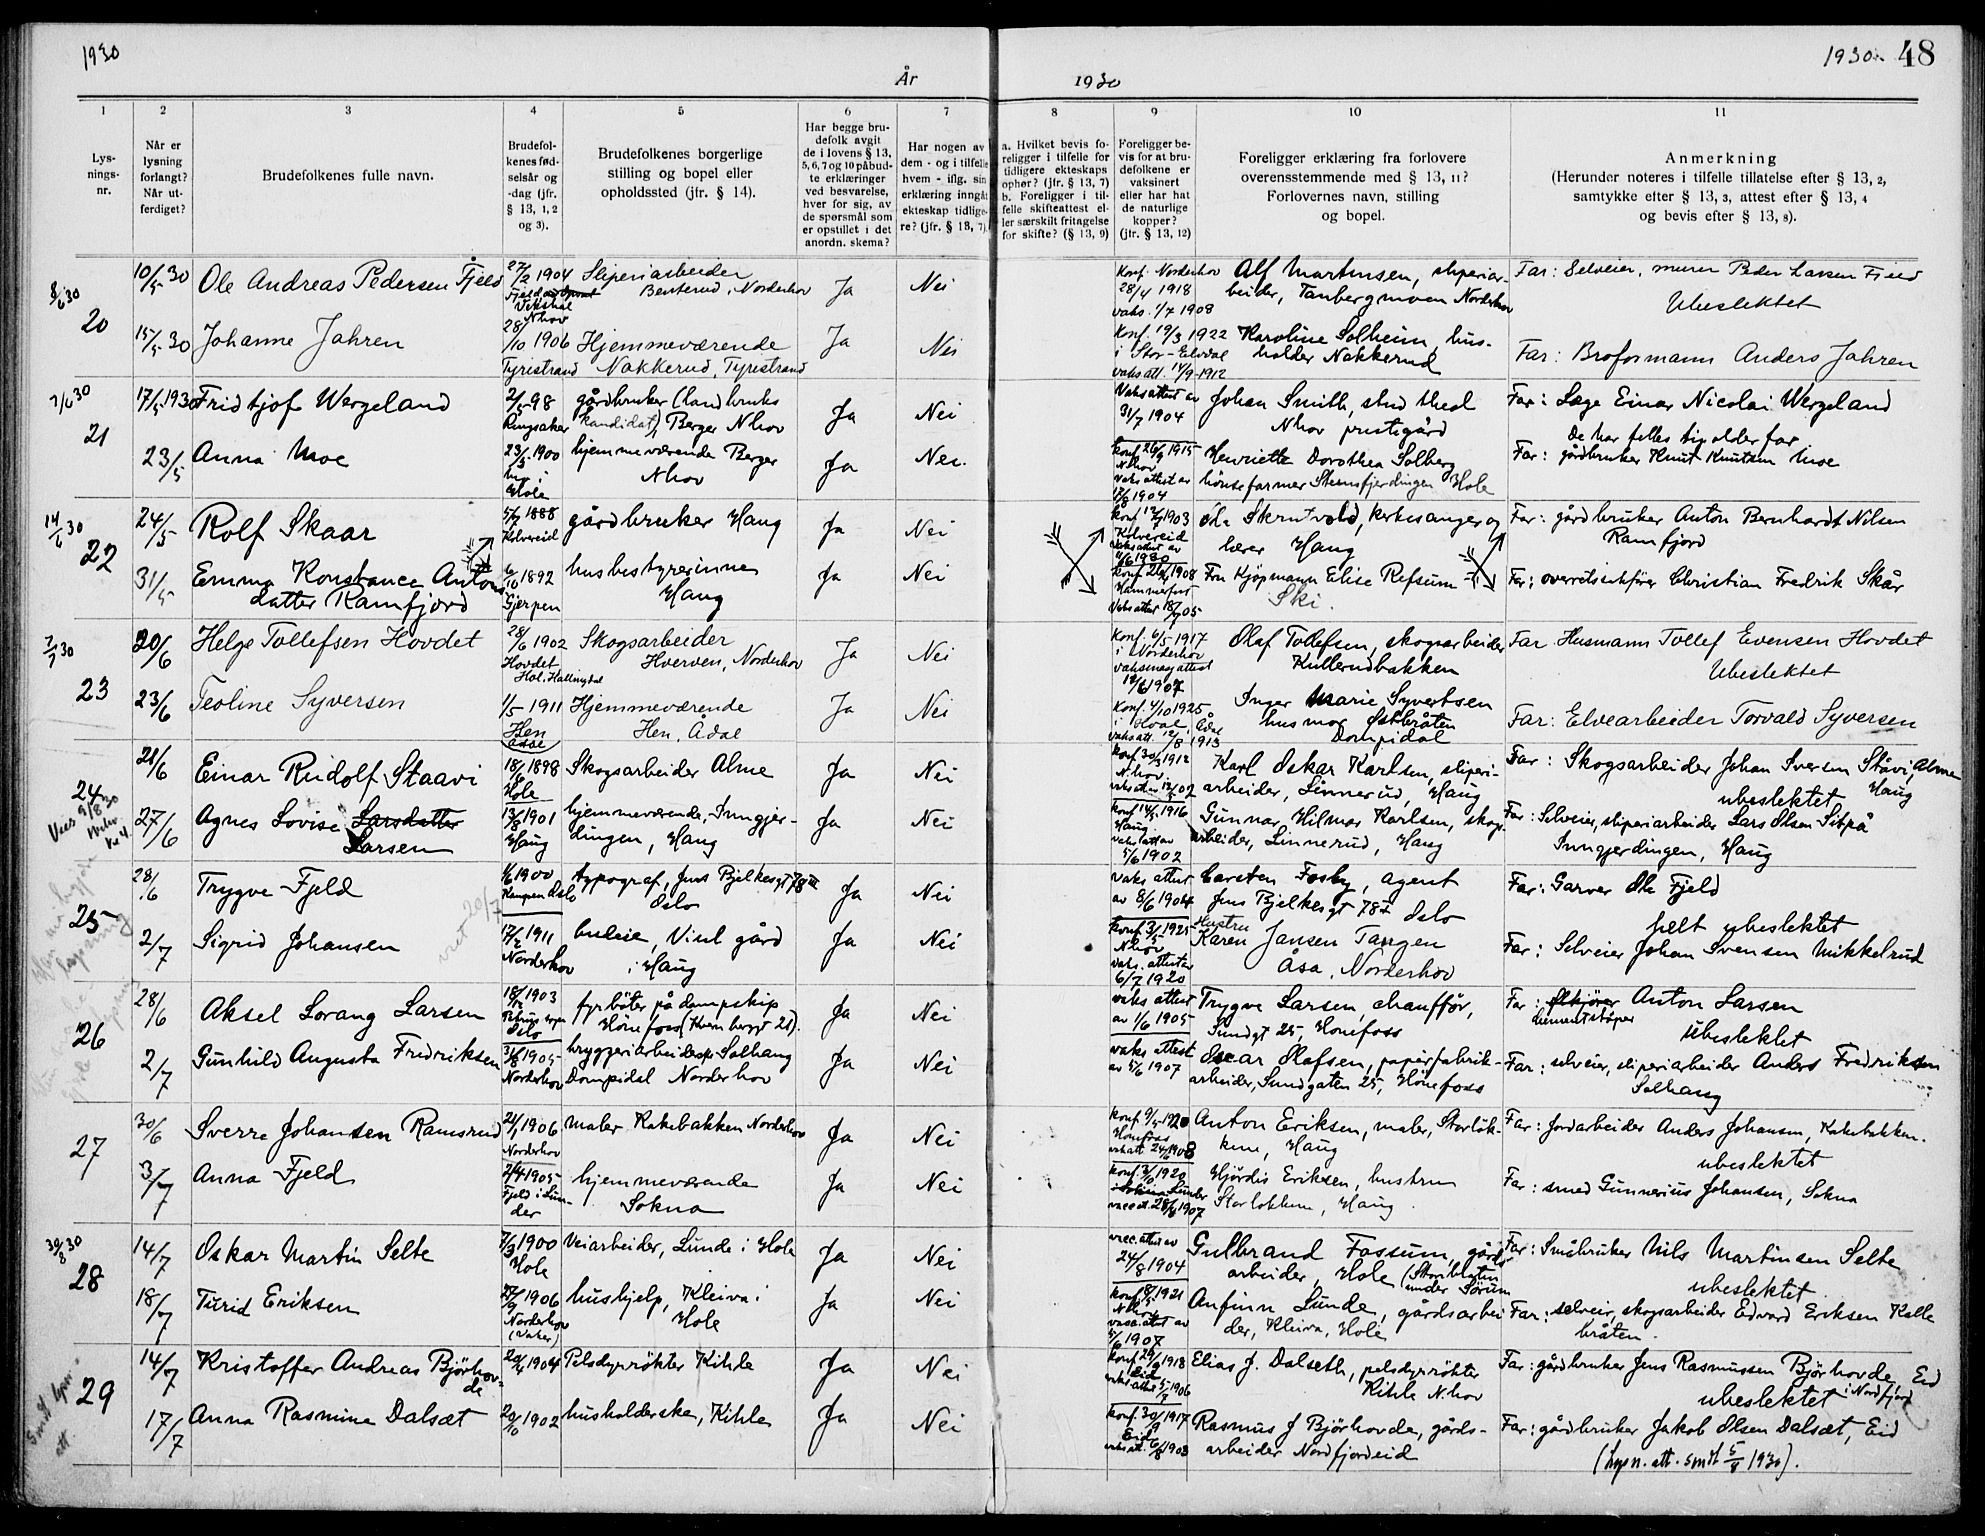 1930
År 1930
1930. 48
1
Lysnings-
nr.
2
Når er
lysning
forlangt?
Når ut-
ferdiget?
3
Brudefolkenes fulle navn.
4
Brudefol-
kenes fød-
selsår og
-dag (jfr.
§ 13, 1, 2
og 3).
5
Brudefolkenes borgerlige
stilling og bopel eller
opholdssted (jfr. § 14).
6
Har begge bru-
defolk avgit
de i lovens § 13,
5, 6, 7 og 10 påbud-
te erklæringer
ved besvarelse,
hver for sig, av
de spørsmål som
er opstillet i det
anordn. skema?
7
Har nogen av
dem - og i tilfelle
hvem - iflg. sin
erklæring inngåt
ekteskap tidlige-
re? (jfr. § 13, 7)
8
a. Hvilket bevis fo-
religger i tilfelle for
tidligere ekteskaps
ophør? (jfr. § 13, 7)
b. Foreligger i til-
felle skifteattest el-
ler særskilt fritagelse
for skifte? (§ 13, 9)
9
Foreligger be-
vis for at bru-
defolkene er
vaksinert
eller har hat
de naturlige
kopper?
(jfr. § 13, 12)
10
Foreligger erklæring fra forlovere
overensstemmende med § 13, 11?
Forlovernes navn, stilling
og bopel.
11
Anmerkning
(Herunder noteres i tilfelle tillatelse efter § 13, 2,
samtykke efter § 13, 3, attest efter § 13, 4
og bevis efter § 13, 8).
8/6 30
20
10/5 30 Ole Andreas Pedersen Fjeld
27/2 1904
Sliperiarbeider
Benterud, Norderhov
Ja Nei
Konf. Norderhov
28/4 1918
vaks. 1/7 1908
Alf Martinsen, sliperiar-
beider, Tanbergmoen Norderhov
Far: Selveier, murer Peder Larsen Fjeld
Ubeslektet
15/5 30 Johanne Jahren
28/10 1906
Tyristrand
Hjemmeværende
Nakkerud, Tyristrand
Ja Nei
Konf. 19/3 1922
i Stor-Elvdal
vaks att. 14/9-1912
Karoline Solheim, hus-
holder Nakkerud
Far: Broformann Anders Jahren
7/6 30
21
17/5 1930 Fridtjof Wergeland
2/5-98
Ringsaker
gårdbruker (landbruks
kandidat), Berger Nhov
Ja Nei
Vaksattest av
31/7 1904
Johan Smith, stud theol
Nhov prestegård
Far: Læge Einar Nicolai Wergeland
De har felles tipolderfar
23/5 Anna Moe
23/3 1900
Moe i
Hole
hjemmeværende Berger
Nhov
Ja Nei.
konf. 26/9 1915
Nhov
vaksattest av
17/8 1904
Henriette Dorothea Solberg
hønsefarmer Steinsfjerdingen Hole
Far: gårdbruker Knut Knutsen Moe
14/6 30
22
24/5 Rolf Skaar
5/7 1888
Kolvereid
gårdbruker Haug
Ja Nei
konf. 12/7 1903
Kolvereid
vaksattest av
11/6 1930
Ole Skrutvold, kirkesanger og
lærer Haug
Far: gårdbruker Anton Bernhardt Nilsen
Ramfjord
31/5 Emma Konstance Antons
datter Ramfjord
6/10 1892
Gjerpen
husbestyrerinne
Haug
Ja Nei
Hammerfest
Vaksattest 18/9 05
Fru Kjøpmann Elise Refsum
Ski.
Far: overretssakfører Christian Fredrik Skår
7/7 30
23
20/6 Helge Tollefsen Hovdet
28/6 1902
Hovdet
Hol. Hallingdal
Skogsarbeider
Hverven, Norderhov
Ja Nei
Konf. 6/5 1917
i Norderhov
vaksinasj attest
12/6 1907
Olaf Tollefsen, skogsarbeider
Kullerudbakken
Far Husmann Tollef Evensen Hovdet
Ubeslektet
23/6 Teoline Syversen
1/5 1911
Hen
Ådal
Hjemmeværende
Hen, Ådal
Ja Nei
Konf. 4/10 1925
i Hval, Ådal
vaks att. 12/8 1913
Inger Marie Syvertsen
husmor Østbråten
Dompidal
Far: Elvearbeider Torvald Syversen
24
21/6 Einar Rudolf Staavi
18/6 1898
Hole
Skogsarbeider Alme
Ja Nei
N.hov.
Karl Oskar Karlsen, sliperi-
arbeider, Linnerud, Haug
Far: Skogsarbeider Johan Iversen Stavi, Alme
Haug
ubeslektet
27/6 Agnes Lovise Larsdatter
Larsen
13/8 1901
Haug
hjemmeværende, Inngjer-
dingen, Haug
Ja Nei
Haug
vaksattav
5/6 1902
Gunnar Hilmar Karlsen, skogs-
arbeider, Linnerud, Haug
Far: Selveier, sliperiarbeider Lars Olsen Setpå
Inngjerdingen, Haug
25
28/6 Trygve Fjeld
1/6 1900
Kampen Oslo
typograf, Jens Bjelkesgt 78 III
Oslo
Ja Nei
vaks attest
av 8/6 1904
Carsten Fosby, agent
Jens Bjelkesgt 78 I Oslo
Far: Garver Ole Fjeld
helt ubeslektet
2/7 Sigrid Johansen
17/2 1911
Norderhov
budeie, Viul gård
i Haug
Ja Nei
konf. 3/5 1925
Nhov
vaks. attest av
6/7 1920
Hustru
Karen Jansen Tangen
Åsa, Norderhov
Far: Selveier Johan Svensen Mikkelrud
26
28/6 Aksel Lorang Larsen
18/12 1903
Oslo
fyrbøter på dampskip
Hönefoss (Kvernbergt 21).
Ja Nei
vaks attest
av 1/6 1905
Trygve Larsen, chaufför,
Sundgt 25, Hönefoss
Far: Ølkjører Anton Larsen
Cementstøper
Ubeslektet
2/7 Gunhild Augusta Fredriksen
31/8 1905
Norderhov
bryggeriarbeiderske Solhaug
Dompidal Norderhov
Ja Nei
vaks attest
av 5/6 1907
Oscar Olafsen, papirfabrik-
arbeider, Sundgaten 25, Hönefoss
Far: selveier, sliperiarbeider Anders Fredriksen
Solhaug
27
30/6 Sverre Johansen Ramsrud
21/1 1906
Norderhov
maler Rakebakken Norderhov
Ja Nei
konf. 9/5 1920
Hönefoss
vakatt 24/6 1908
Anton Eriksen, maler, Storløk-
kene, Haug
Far: Jordarbeider Anders Johansen, Rakebakken.
ubeslektet
3/7 Anna Fjeld
2/4 1905
Fjeld i Lun-
der
hjemmeværende
Sokna
Ja Nei
konf. 3/10 1920
vacc at. 28/6 1907
Hjørdis Eriksen, hustru
Storløkken, Haug.
Far: smed Gunnerius Johansen, Sokna
30/8 30
28
14/7 Oskar Martin Selte
7/3 1900
Hole
Veiarbeider, Lunde i Hole
Ja Nei
vacc. attest av
24/8 1904
Gulbrand Fossum, gårds-
arbeider, Hole
under Sørum
Far: Småbruker Nils Martinsen Selte
ubeslektet
18/7 Turid Eriksen
27/9 1906
Norderhov
(Vaker)
hushjelp, Kleiva i
Hole
Ja Nei
Nhov
vacc. attest av
5/6 1907
Anfinn Lunde, gårdsarbei
der, Kleiva, Hole
Far: selveier, skogsarbeider Edvard Eriksen, Kalle
bråten.
29
14/7 Kristoffer Andreas Bjørhov-
de
20/4 1904
Pelsdyrrøkter Kihle
Ja Nei
Eid
Elias J. Dalseth, pelsdyrrøkter
Kihle N.hov
Far: gårdbruker Jens Rasmussen Bjørhovde, Eid
i Nordfjord
ubeslektet
17/7 Anna Rasmine Dalsæt
20/10 1902
husholderske, Kihle
Ja Nei
konf. 30/9 1917
Eid
vaks att. 6/8 1903
Rasmus J Bjørhovde, gårds-
arbeider Nordfjordeid
Far: gårdbruker Jakob Olsen Dalsæt, Eid
(Lysn. att. smst 5/8 1930).